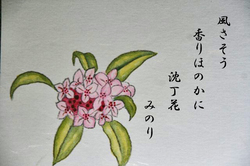 風さそう
香りほのかに
沈丁花
みのり